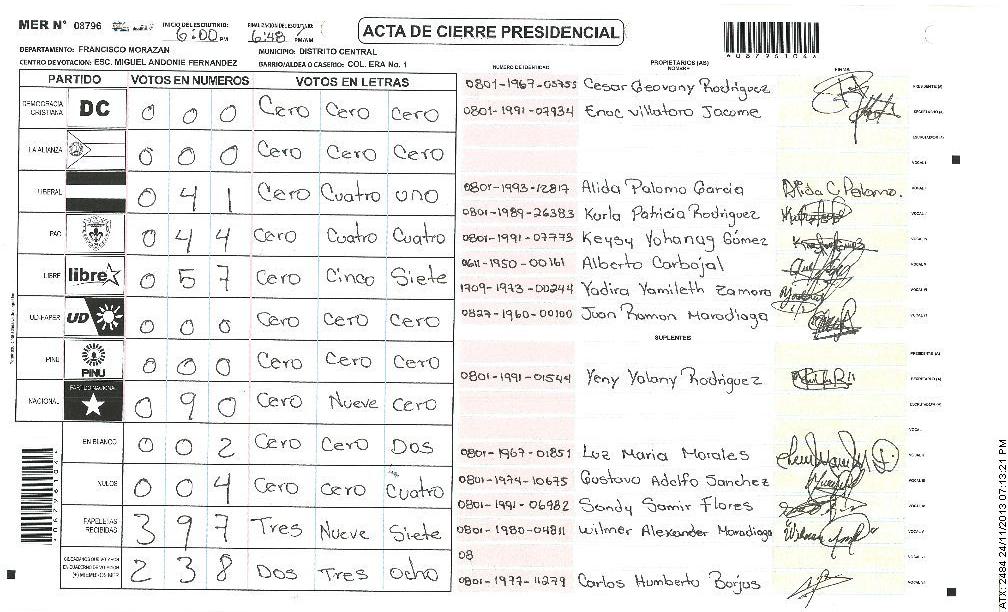 MER N° 08796
INICIO DEL ESCRUTINIO: 6:00 PM
FINALIZACION DEL ESCRUTINIO: 6:48 PM/AM
ACTA DE CIERRE PRESIDENCIAL
DEPARTAMENTO: FRANCISCO MORAZAN
MUNICIPIO: DISTRITO CENTRAL
CENTRO DE VOTACION: ESC. MIGUEL ANDONIE FERNANDEZ
BARRIO/ALDEA O CASERIO: COL. ERA No. 1
PARTIDO VOTOS EN NUMEROS VOTOS EN LETRAS
DEMOCRACIA CRISTIANA DC 0 0 0 Cero Cero Cero
LA ALIANZA 0 0 0 Cero Cero Cero
LIBERAL 0 4 1 Cero Cuatro uno
PAC 0 4 4 Cero Cuatro Cuatro
LIBRE libre 0 5 7 Cero Cinco Siete
UD-FAPER UD 0 0 0 Cero Cero Cero
PINU PINU 0 0 0 Cero Cero Cero
NACIONAL PARTIDO NACIONAL 0 9 0 Cero Nueve Cero
EN BLANCO 0 0 2 Cero Cero Dos
NULOS 0 0 4 Cero cero Cuatro
PAPELETAS RECIBIDAS 3 9 7 Tres Nueve Siete
2 3 8 Dos Tres ocho
NUMERO DE IDENTIDAD
PROPIETARIOS (AS)
NOMBRE
FIRMA
0801-1967-05755 Cesar Geovany Rodriguez
0801-1991-07934 Enoc Villatoro Jacome
0801-1993-12817 Alida Palomo Garcia Alida C. Palomo.
0801-1989-26383 Karla Patricia Rodriguez
0801-1991-07773 Keysy Yohanag Gómez
0611-1950-00161 Alberto Carbajal
1709-1973-00244 Yadira Yamileth Zamora
0827-1960-00100 Juan Ramon Maradiaga
SUPLENTES
0801-1991-01544 Yeny Yolany Rodriguez
0801-1967-01851 Luz Maria Morales
0801-1974-10675 Gustavo Adolfo Sanchez
0801-1991-06982 Sandy Samir Flores
0801-1980-04811 Wilmer Alexander Maradiaga
08
0801-1977-11279 Carlos Humberto Borjas
24/11/2013 07:13:21 PM